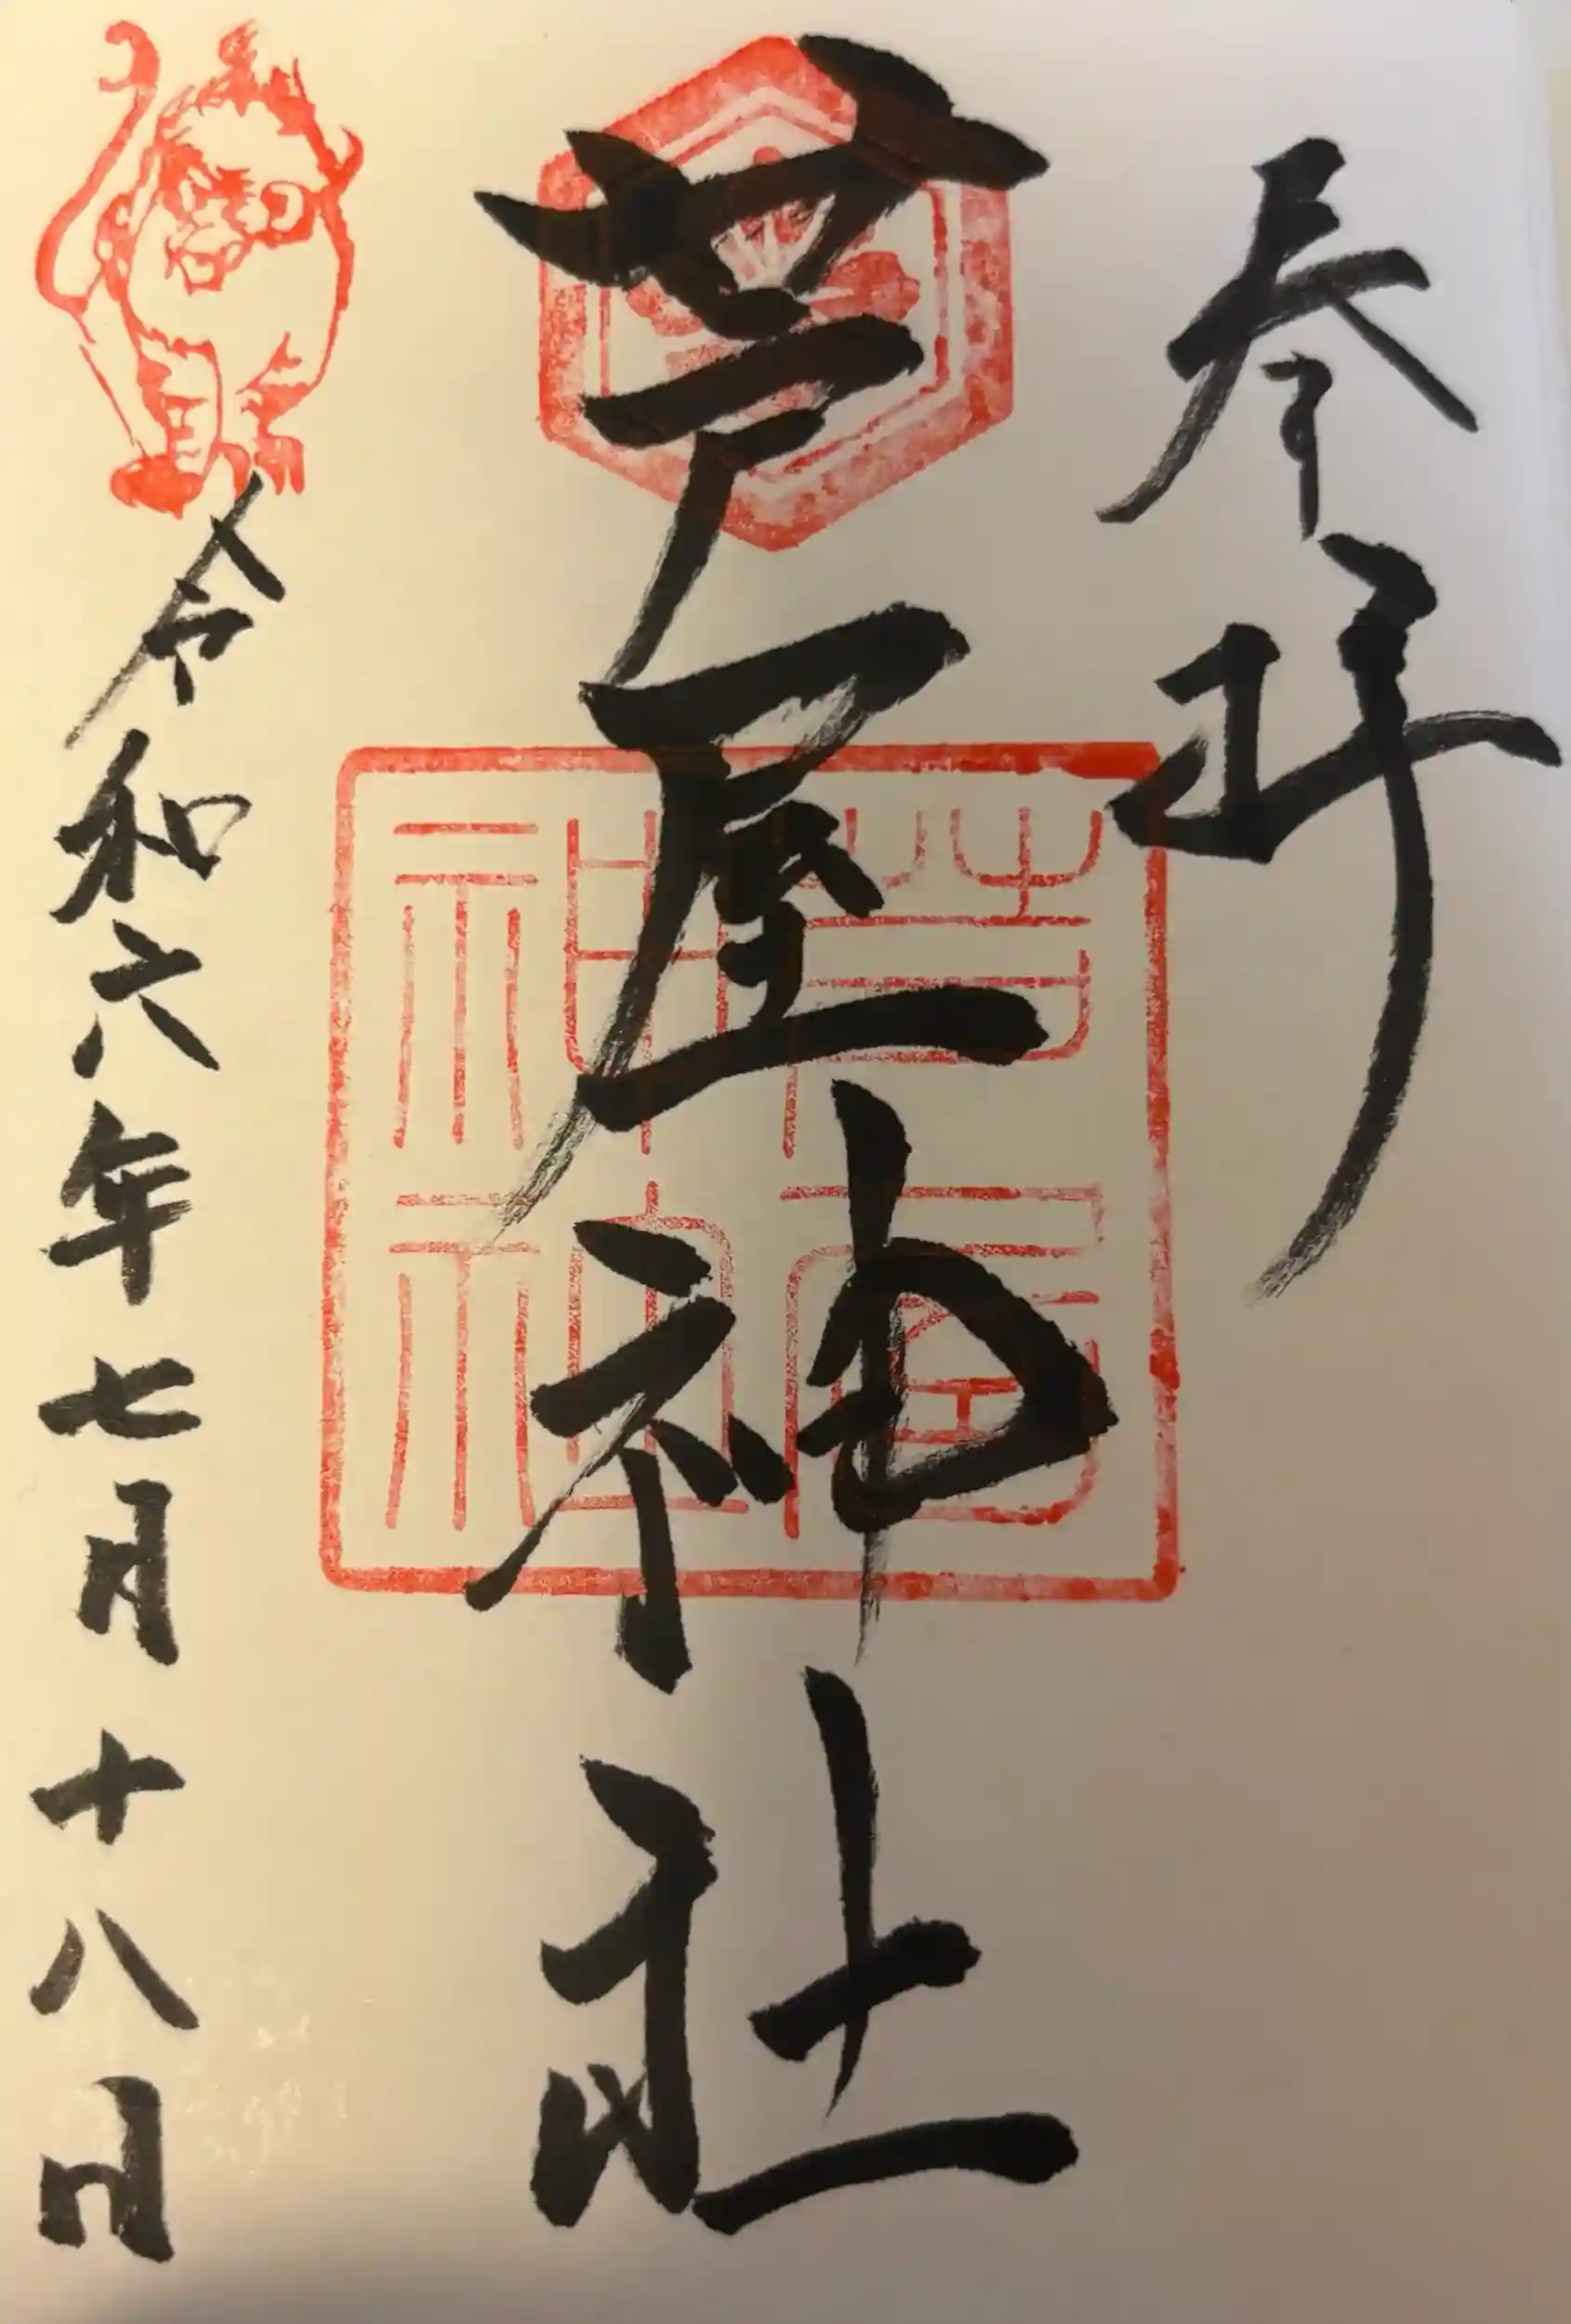 参拝
芦屋神社
令和六年七月十八日
芦屋神社